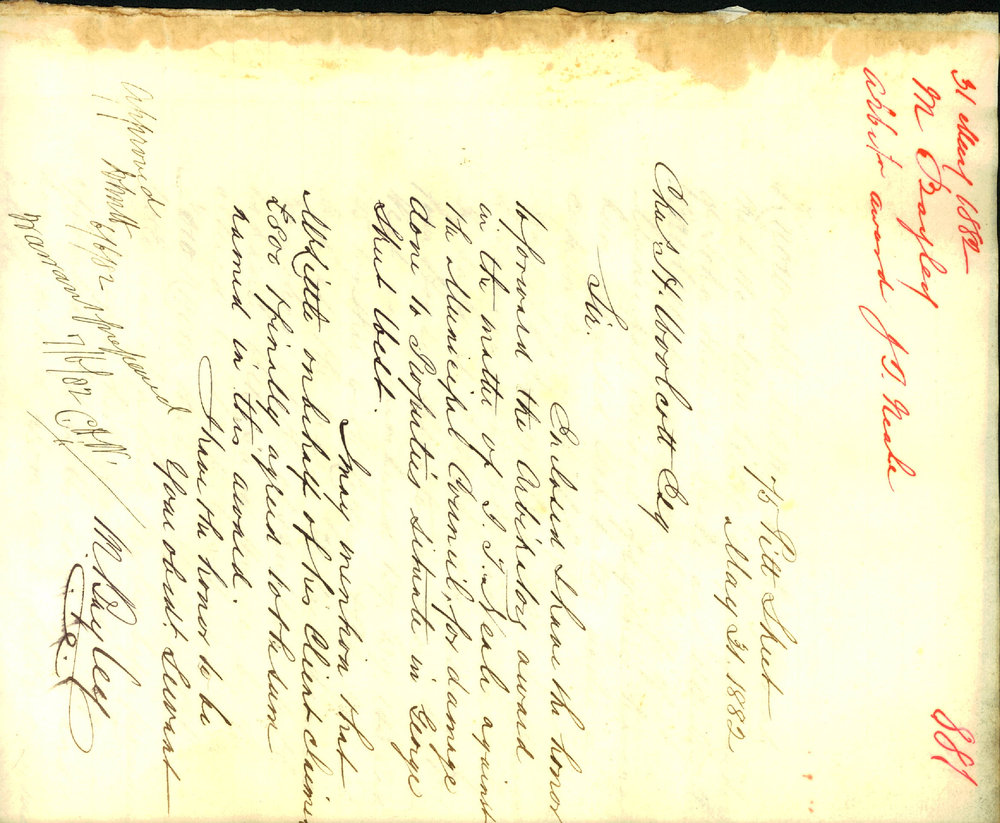 31 May 1882
M Bayley
Arbitn award J. T. Neale
881
75 Pitt Street
May 31. 1882
Chas H. Woolcott Esq
Sir.
Enclosed I have the honor
to forward the Arbitrators award
in the matter of J. T. Neale against
the Municipal Council, for damage
done to Properties situate in George
Street West.
I may mention that
on behalf of his Client claimed
£800 & finally agreed to the sum
named in this award.
I have the honor to be
Your obedt. Servant
M. Bayley
Approved
6/6/82
Warrant prepared
7/6/82 C.H.W.